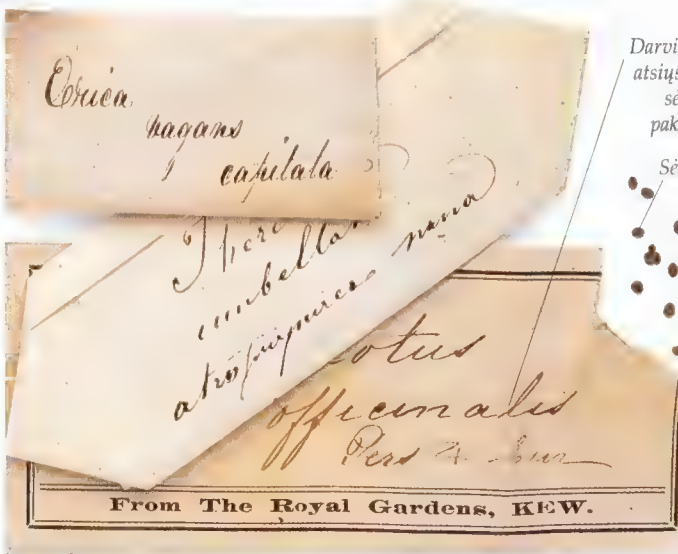 Erica
vagans
capitata
umbellata
atropurpurea nana
otus
officinalis
Pers
From The Royal Gardens, KEW.
Darvi
atsiųs
sė
pak
Sė